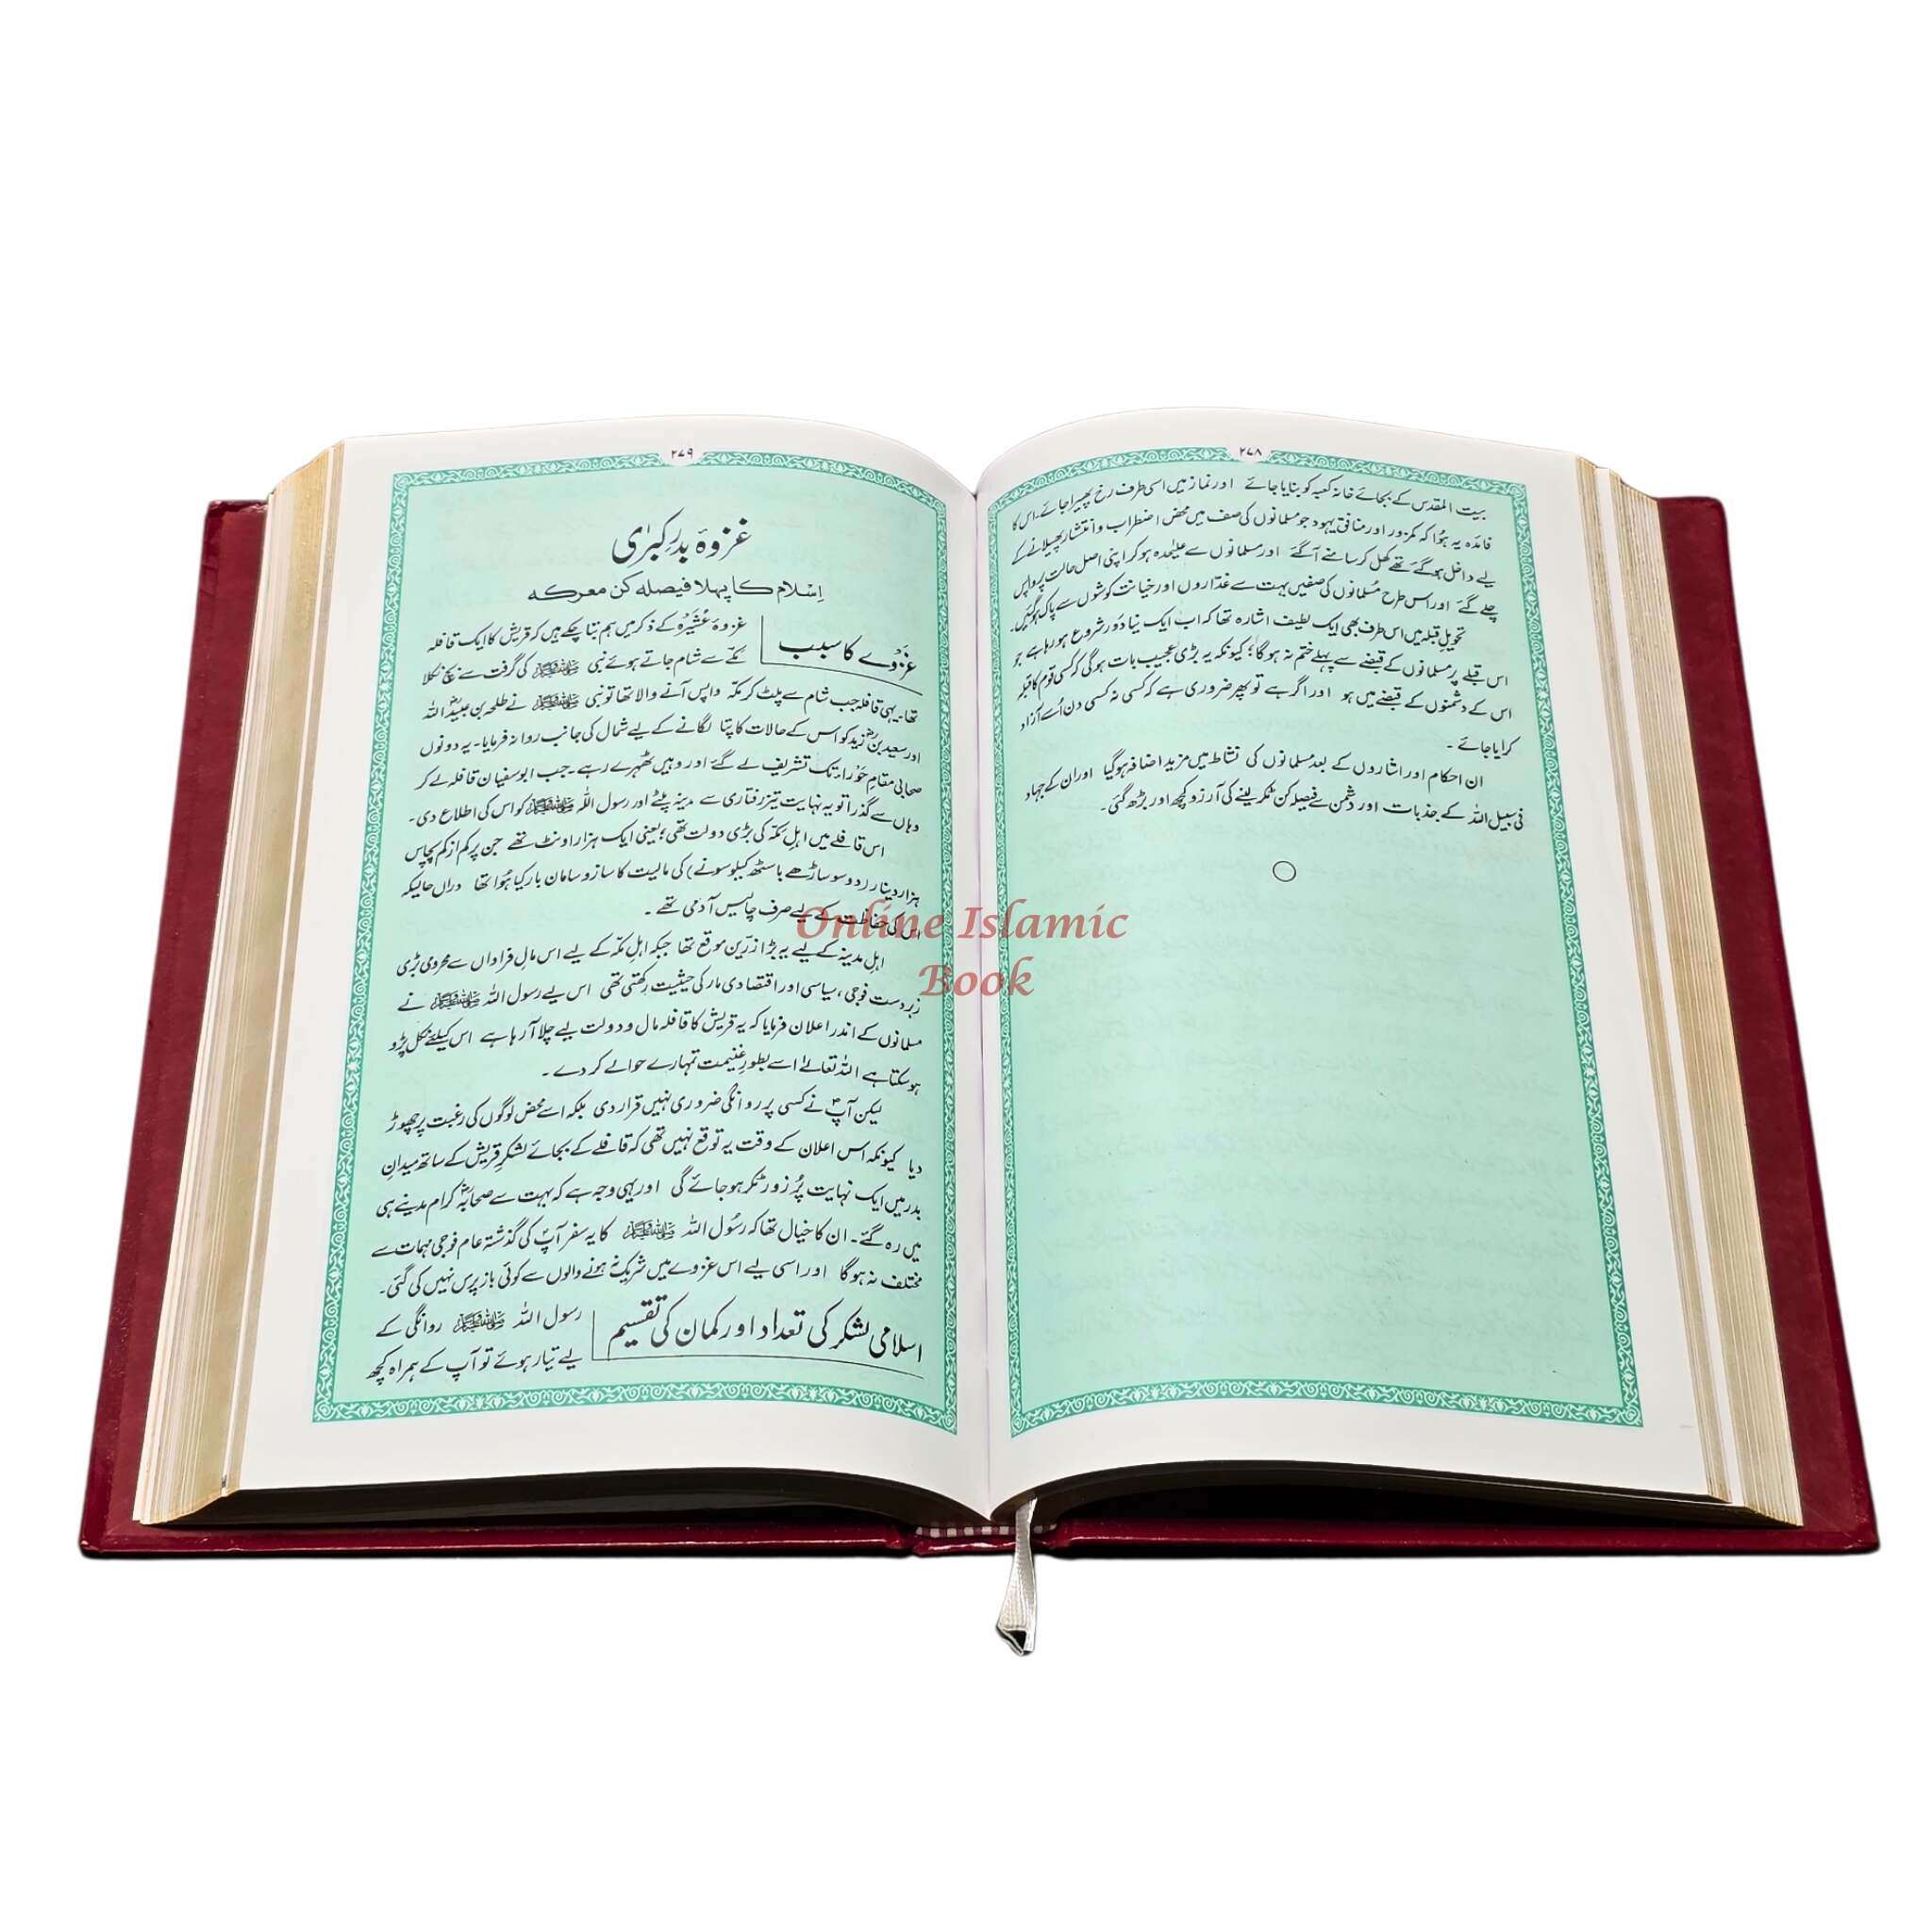 ۲۷۸
بیت المقدس کے بجائے خانہ کعبہ کو بنایا جائے اور نماز میں اسی طرف رخ پھیرا جائے۔ اس کا
فائدہ یہ ہُوا کہ کمزور اور منافق یہود جو مسلمانوں کی صف میں محض اضطراب و انتشار پھیلانے کے
لیے داخل ہو گئے تھے کھل کر سامنے آگئے اور مسلمانوں سے علیٰحدہ ہو کر اپنی اصل حالت پر واپس
چلے گئے اور اس طرح مُسلمانوں کی صفیں بہت سے غدّاروں اور خیانت کوشوں سے پاک ہو گئیں۔
تحویلِ قبلہ میں اس طرف بھی ایک لطیف اشارہ تھا کہ اب ایک نیا دَور شروع ہو رہا ہے جو
اس قبلے پر مسلمانوں کے قبضے سے پہلے ختم نہ ہوگا؛ کیونکہ یہ بڑی عجیب بات ہوگی کہ کسی قوم کا قبلہ
اس کے دشمنوں کے قبضے میں ہو اور اگر ہے تو پھر ضروری ہے کہ کسی نہ کسی دن اُسے آزاد
کرایا جائے۔
ان احکام اور اشاروں کے بعد مسلمانوں کی نشاط میں مزید اضافہ ہوگیا اور ان کے جہاد
فی سبیل اللہ کے جذبات اور دشمن سے فیصلہ کن ٹکر لینے کی آرزو کچھ اور بڑھ گئی۔
۲۷۹
غزوۂ بدرِ کبرٰی
اِسْلام کا پہلا فیصلہ کن معرکہ
غزوے کا سبب
غزوۂ عُشَیْرَہ کے ذکر میں ہم بتا چکے ہیں کہ قریش کا ایک قافلہ
مکے سے شام جاتے ہوئے نبی ﷺ کی گرفت سے بچ نکلا
تھا۔ یہی قافلہ جب شام سے پلٹ کر مکہ واپس آنے والا تھا تو نبی ﷺ نے طلحہ بن عبیدؓ اللہ
اور سعید بنؓ زید کو اس کے حالات کا پتا لگانے کے لیے شمال کی جانب روانہ فرمایا۔ یہ دونوں
صحابی مقام حَوْراء تک تشریف لے گئے اور وہیں ٹھہرے رہے۔ جب ابوسفیان قافلہ لے کر
وہاں سے گذرا تو یہ نہایت تیز رفتاری سے مدینہ پلٹے اور رسول اللہ ﷺ کو اس کی اطلاع دی۔
اس قافلے میں اہلِ مکہ کی بڑی دولت تھی؛ یعنی ایک ہزار اونٹ تھے جن پر کم از کم پچاس
ہزار دینار (دو سو ساڑھے باسٹھ کیلو سونے) کی مالیت کا ساز و سامان بار کیا ہُوا تھا دراں حالیکہ
اس کی حفاظت کے لیے صرف چالیس آدمی تھے۔
اہلِ مدینہ کے لیے یہ بڑا زرّیں موقع تھا جبکہ اہلِ مکہ کے لیے اس مالِ فراواں سے محرومی بڑی
زبردست فوجی، سیاسی اور اقتصادی مار کی حیثیت رکھتی تھی اس لیے رسول اللہ ﷺ نے
مسلمانوں کے اندر اعلان فرمایا کہ یہ قریش کا قافلہ مال و دولت لیے چلا آ رہا ہے اس کیلئے نکل پڑو
ہوسکتا ہے اللہ تعالےٰ اسے بطورِ غنیمت تمہارے حوالے کر دے۔
لیکن آپؐ نے کسی پر روانگی ضروری نہیں قرار دی بلکہ اسے محض لوگوں کی رغبت پر چھوڑ
دیا کیونکہ اس اعلان کے وقت یہ توقع نہیں تھی کہ قافلے کے بجائے لشکرِ قریش کے ساتھ میدانِ
بدر میں ایک نہایت پُر زور ٹکر ہو جائے گی اور یہی وجہ ہے کہ بہت سے صحابہؓ کرام مدینے ہی
میں رہ گئے۔ ان کا خیال تھا کہ رسُول اللہ ﷺ کا یہ سفر آپؐ کی گذشتہ عام فوجی مہمات سے
مختلف نہ ہوگا اور اسی لیے اس غزوے میں شریک نہ ہونے والوں سے کوئی باز پرس نہیں کی گئی۔
اسلامی لشکر کی تعداد اور کمان کی تقسیم
رسول اللہ ﷺ روانگی کے
لیے تیار ہوئے تو آپ کے ہمراہ کچھ
Online Islamic
Book